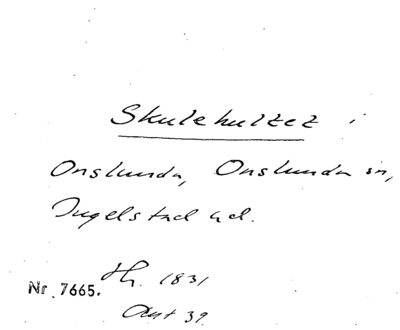 Skulehultet i
Onslunda, Onslunda sn,
Ingelstad hd.
Hr. 1831
Nr 7665.
Ant 39